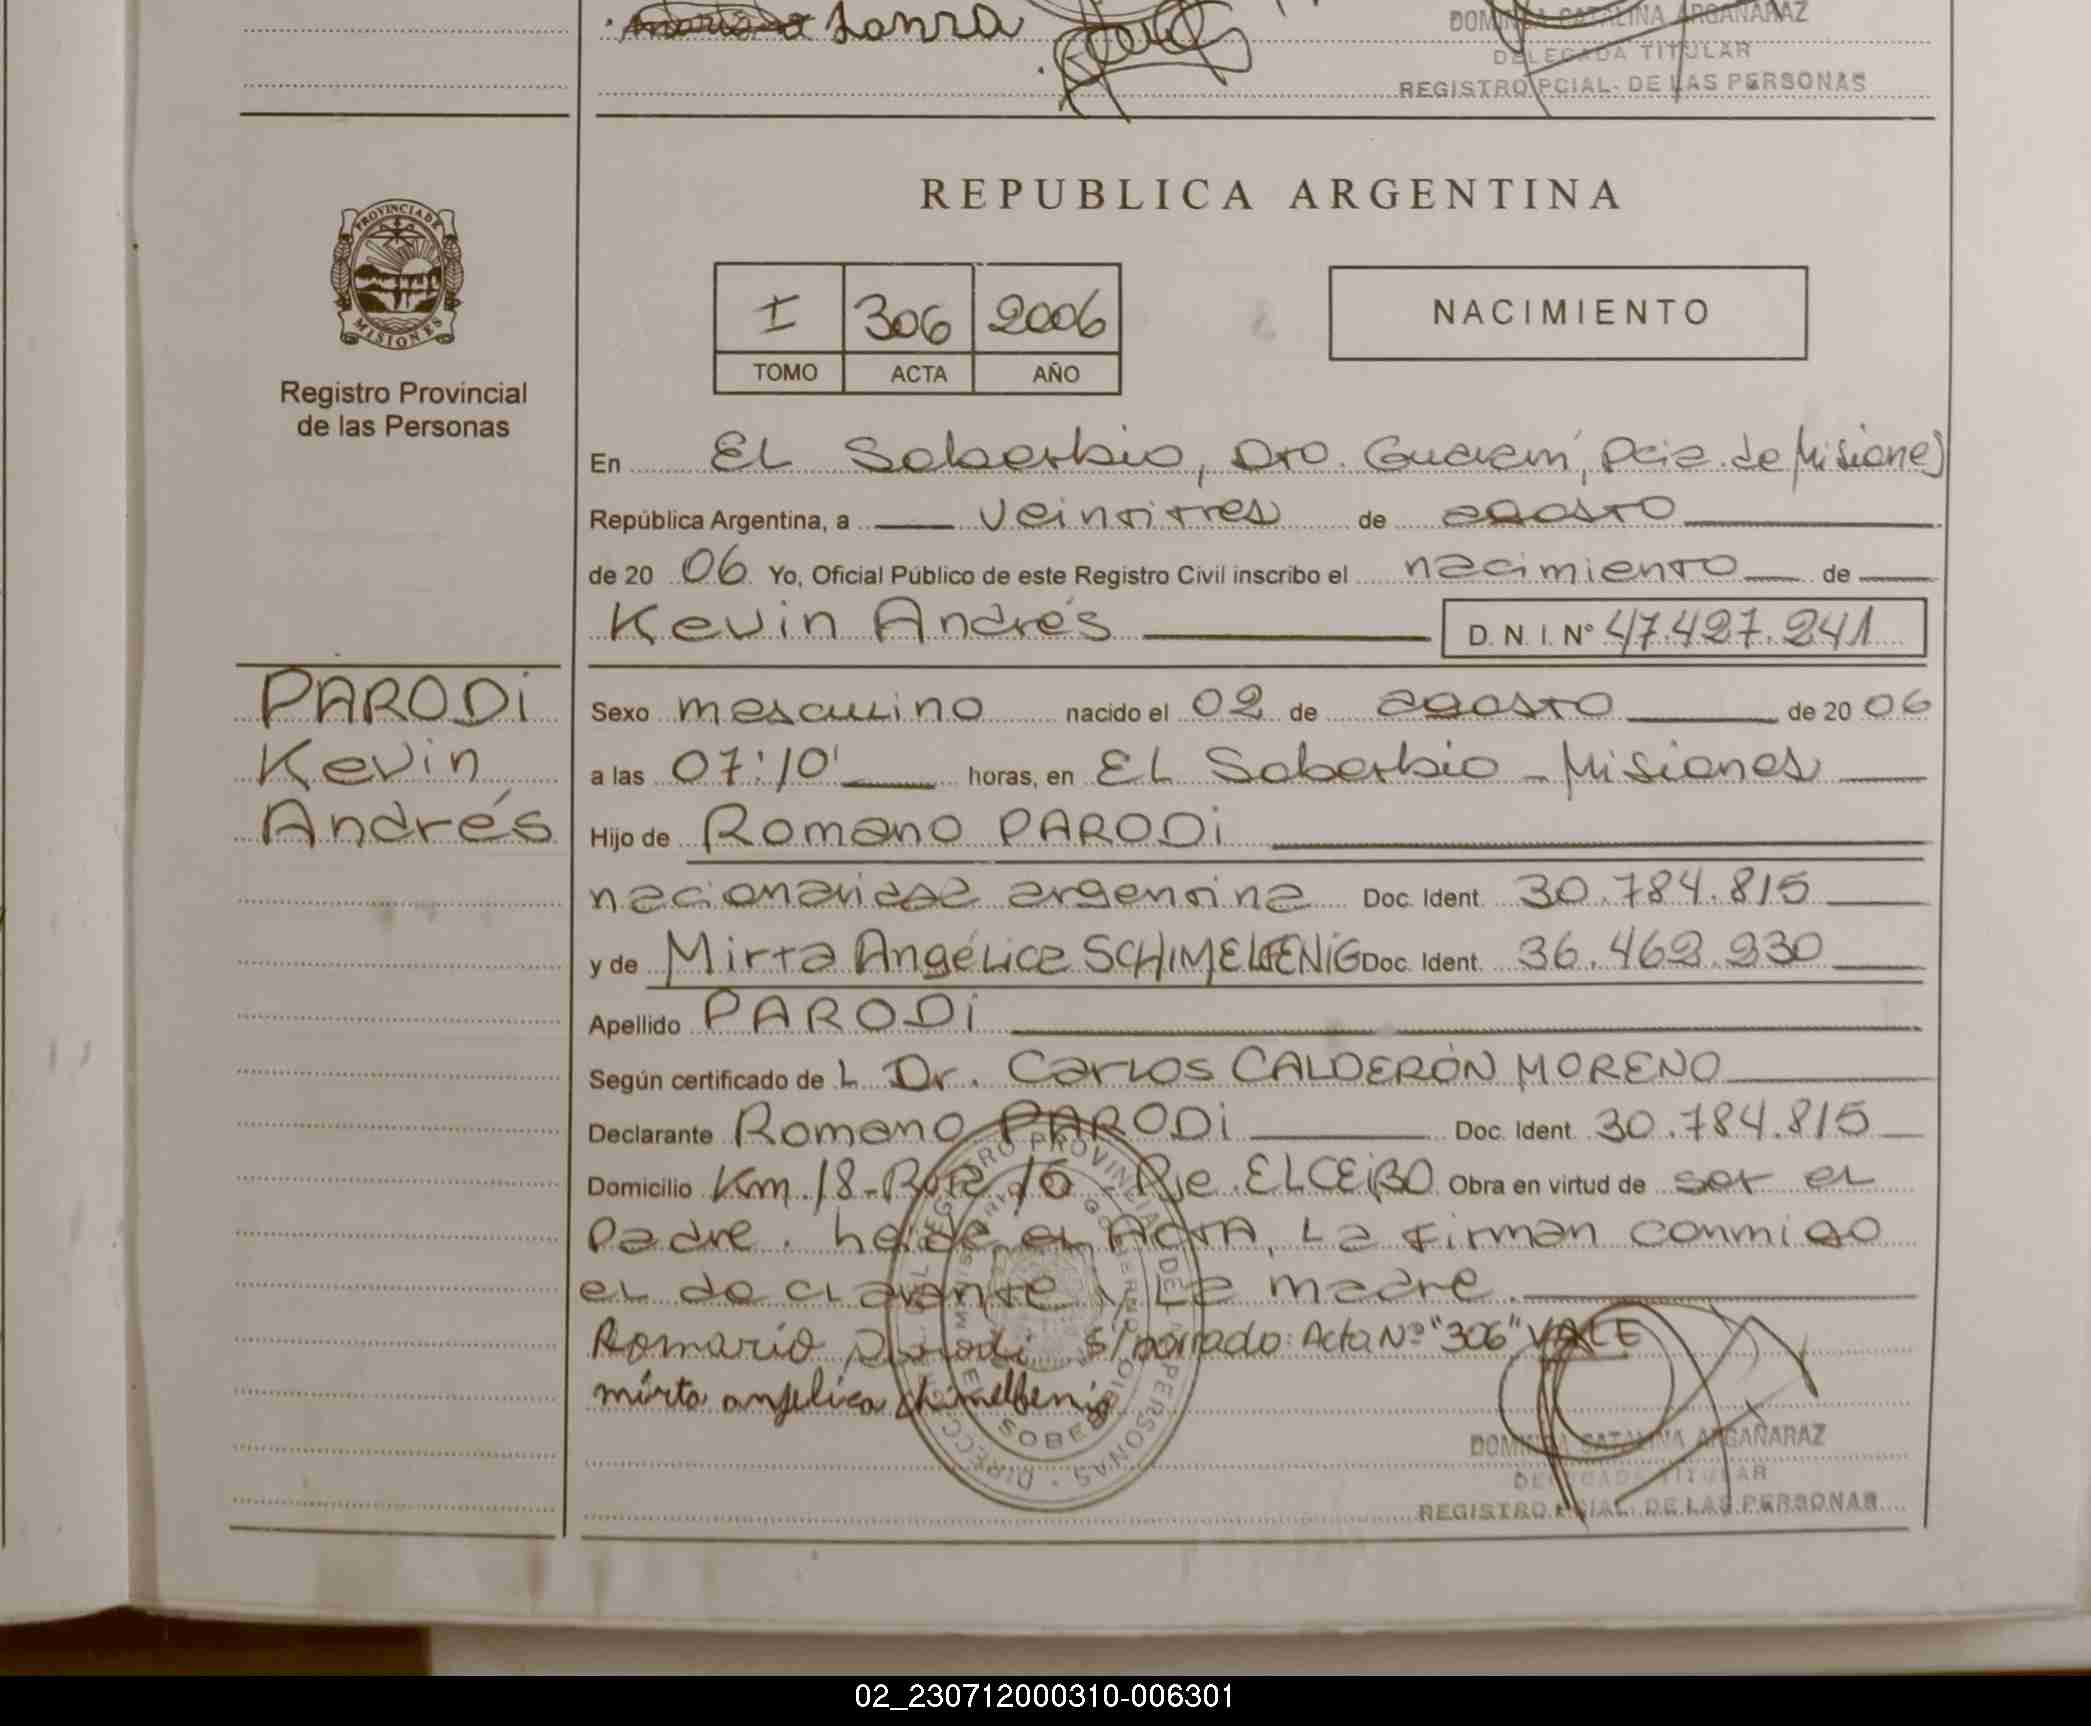 Lanza
DOMINGA CATALINA ARGAÑARAZ
DELEGADA TITULAR
REGISTRO PCIAL- DE LAS PERSONAS
PROVINCIA DE MISIONES
Registro Provincial
de las Personas
REPUBLICA ARGENTINA
I 306 2006
TOMO ACTA AÑO
NACIMIENTO
En EL Soberbio, Dto. Guaraní, Pcia. de Misiones
República Argentina, a veintitres de agosto
de 20 06 Yo, Oficial Público de este Registro Civil inscribo el nacimiento de
Kevin Andrés D. N. I. Nº 47.427.241
PARODi
Kevin
Andrés
Sexo masculino nacido el 02 de agosto de 20 06
a las 07:10' horas, en EL Soberbio - Misiones
Hijo de Romano PARODi
nacionalidad argentina Doc. Ident. 30.784.815
y de Mirta Angélica SCHIMELFENiG Doc. Ident. 36.462.230
Apellido PARODi
Según certificado de L Dr. Carlos CALDERÓN MORENO
Declarante Romano PARODi Doc. Ident. 30.784.815
Domicilio Km. 18 - Ruta 15 - Pje. EL CEiBO Obra en virtud de ser el
padre. Leída el ACTA, La firman conmigo
el declarante y La madre.
Romario Parodi S/ borrado: Acta Nº "306" VALE
mirta anjelica chimelfenig
DOMINGA CATALINA ARGAÑARAZ
DELEGADA TITULAR
REGISTRO PCIAL- DE LAS PERSONAS
02_230712000310-006301